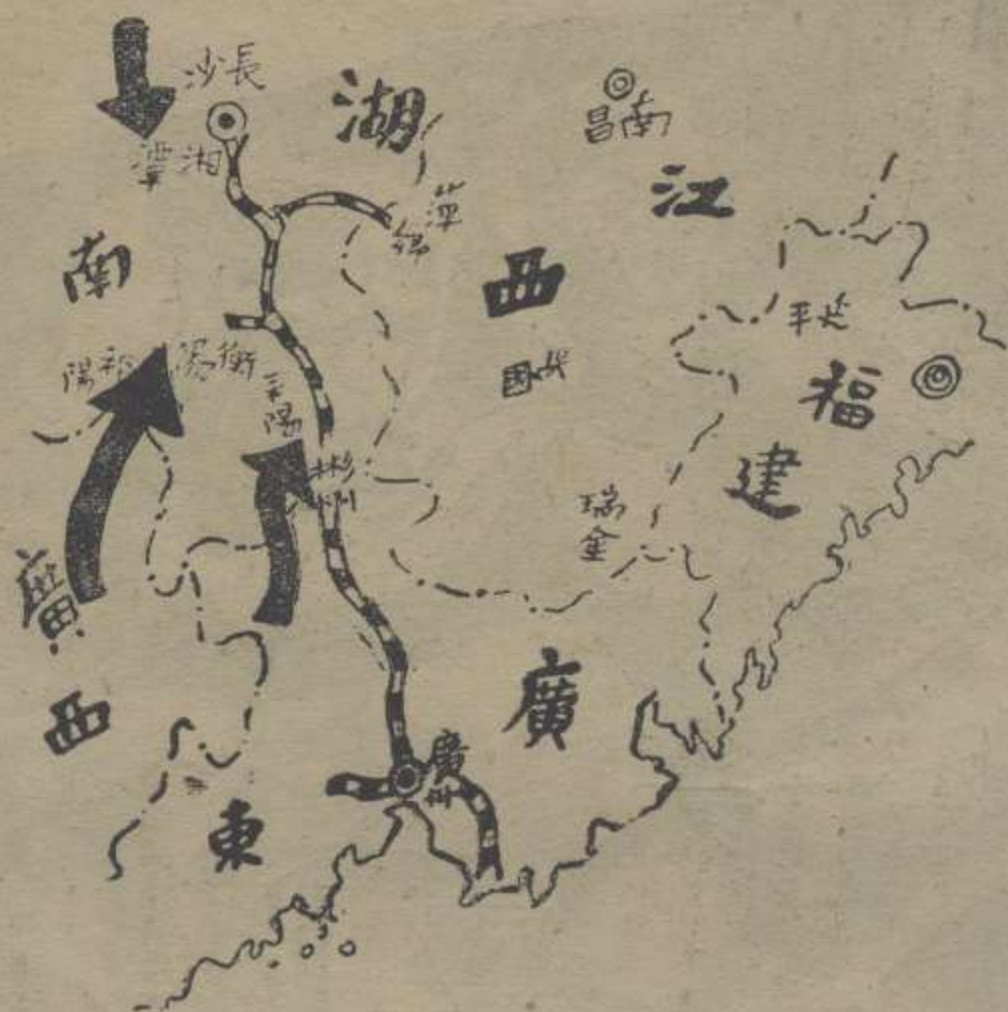 沙長
湖
昌南
潭湘
江
萍鄉
南
西
平延
陽祁
陽衡
耒陽
福
國興
建
郴州
瑞金
廣
西
廣
廣州
東